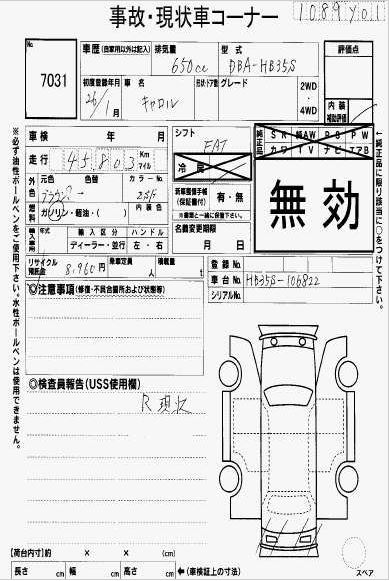 事故・現状車コーナー
No. 7031
車歴(自家用以外は記入) 排気量 650cc 型式 DBA-HB35S 評価点
初度登録年月 26/1月 車名 キャロル 形状・ドア数 グレード 2WD・4WD
内装補助評価
車検 年 月 シフト FAT 純正品 SR 純AW PS PW
カワ TV ナビ エアB
走行 45,803 Km マイル 冷房
外色 元色 色替 カラーNo. 新車整備手帳(保証書付) 有・無 無効
※書類と一緒に保管下さい。
燃料 ガソリン・軽油・( ) 内装色
輸入車用 輸入区分 ハンドル 名義変更期限
ディーラー・並行 左・右 月 日
リサイクル預託金 8,960円 乗車定員 人 積載量 t 登録No.
車台No. HB35S-106822
シリアルNo.
◎注意事項(修復・不具合箇所および状態等)
◎検査員報告(USS使用欄)
R現状
【荷台内寸】約 × × (cm)
長さ cm 幅 cm 高さ cm ←(車検証上の寸法)
スペア
※必ず油性ボールペンをご使用下さい。水性ボールペンは使用できません。
純正品に限り該当に○をつけて下さい。